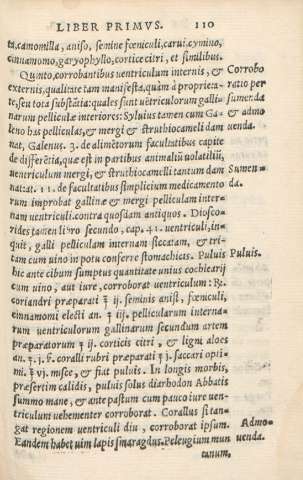 LIBER PRIMVS. 110
ta, camomilla, aniso, semine fœniculi, carui. cymino,
cinnamomo, garyophyllo, cortice citri, et similibus.
Quinto, corrobantibus uentriculum internis, & Corrobo
externis, qualitate tam manifesta, quàm à proprieta- ratio per
te, seu tota substãtia: quales sunt uẽtriculorum galli- sumenda
narum pelliculæ interiores: Syluius tamen cum Ga- & admo
leno has pelliculas, & mergi & struthiocameli dam uenda.
nat, Galenus. 3. de alimẽtorum facultatibus capite
de differẽtia, quæ est in partibus animaliũ uolatiliũ,
uentriculum mergi, & struthiocameli tantum dam Sumen-
nat: at. 11. de facultatibus simplicium medicamento da.
rum improbat gallinæ & mergi pelliculam inter-
nam uentriculi. contra quosdam antiquos. Diosco-
rides tamen libro secundo, cap. 42. uentriculi, in-
quit, galli pelliculam internam siccatam, & tri-
tam cum uino in potu conferre stomachicis. Puluis Puluis.
hic ante cibum sumptus quantitate unius cochlearij
cum uino, aut iure, corroborat uentriculum: ℞.
coriandri præparati ℥ ij. seminis anisi, fœniculi,
cinnamomi electi an. ℥ iij. pellicularum interna-
rum uentriculorum gallinarum secundum artem
præparatorum ℥ ij. corticis citri, & ligni aloes
an. ʒ. j. ß. coralli rubri præparati ʒ j. saccari opti-
mi. ℥ vj. misce, & fiat puluis. In longis morbis,
præsertim calidis, puluis solus diarhodon Abbatis
summo mane, & ante pastum cum pauco iure uen-
triculum uehementer corroborat. Corallus si tan-
gat regionem uentriculi diu, corroborat ipsum. Admo-
Eandem habet uim lapis smaragdus. Peleugium mun uenda.
tanum,